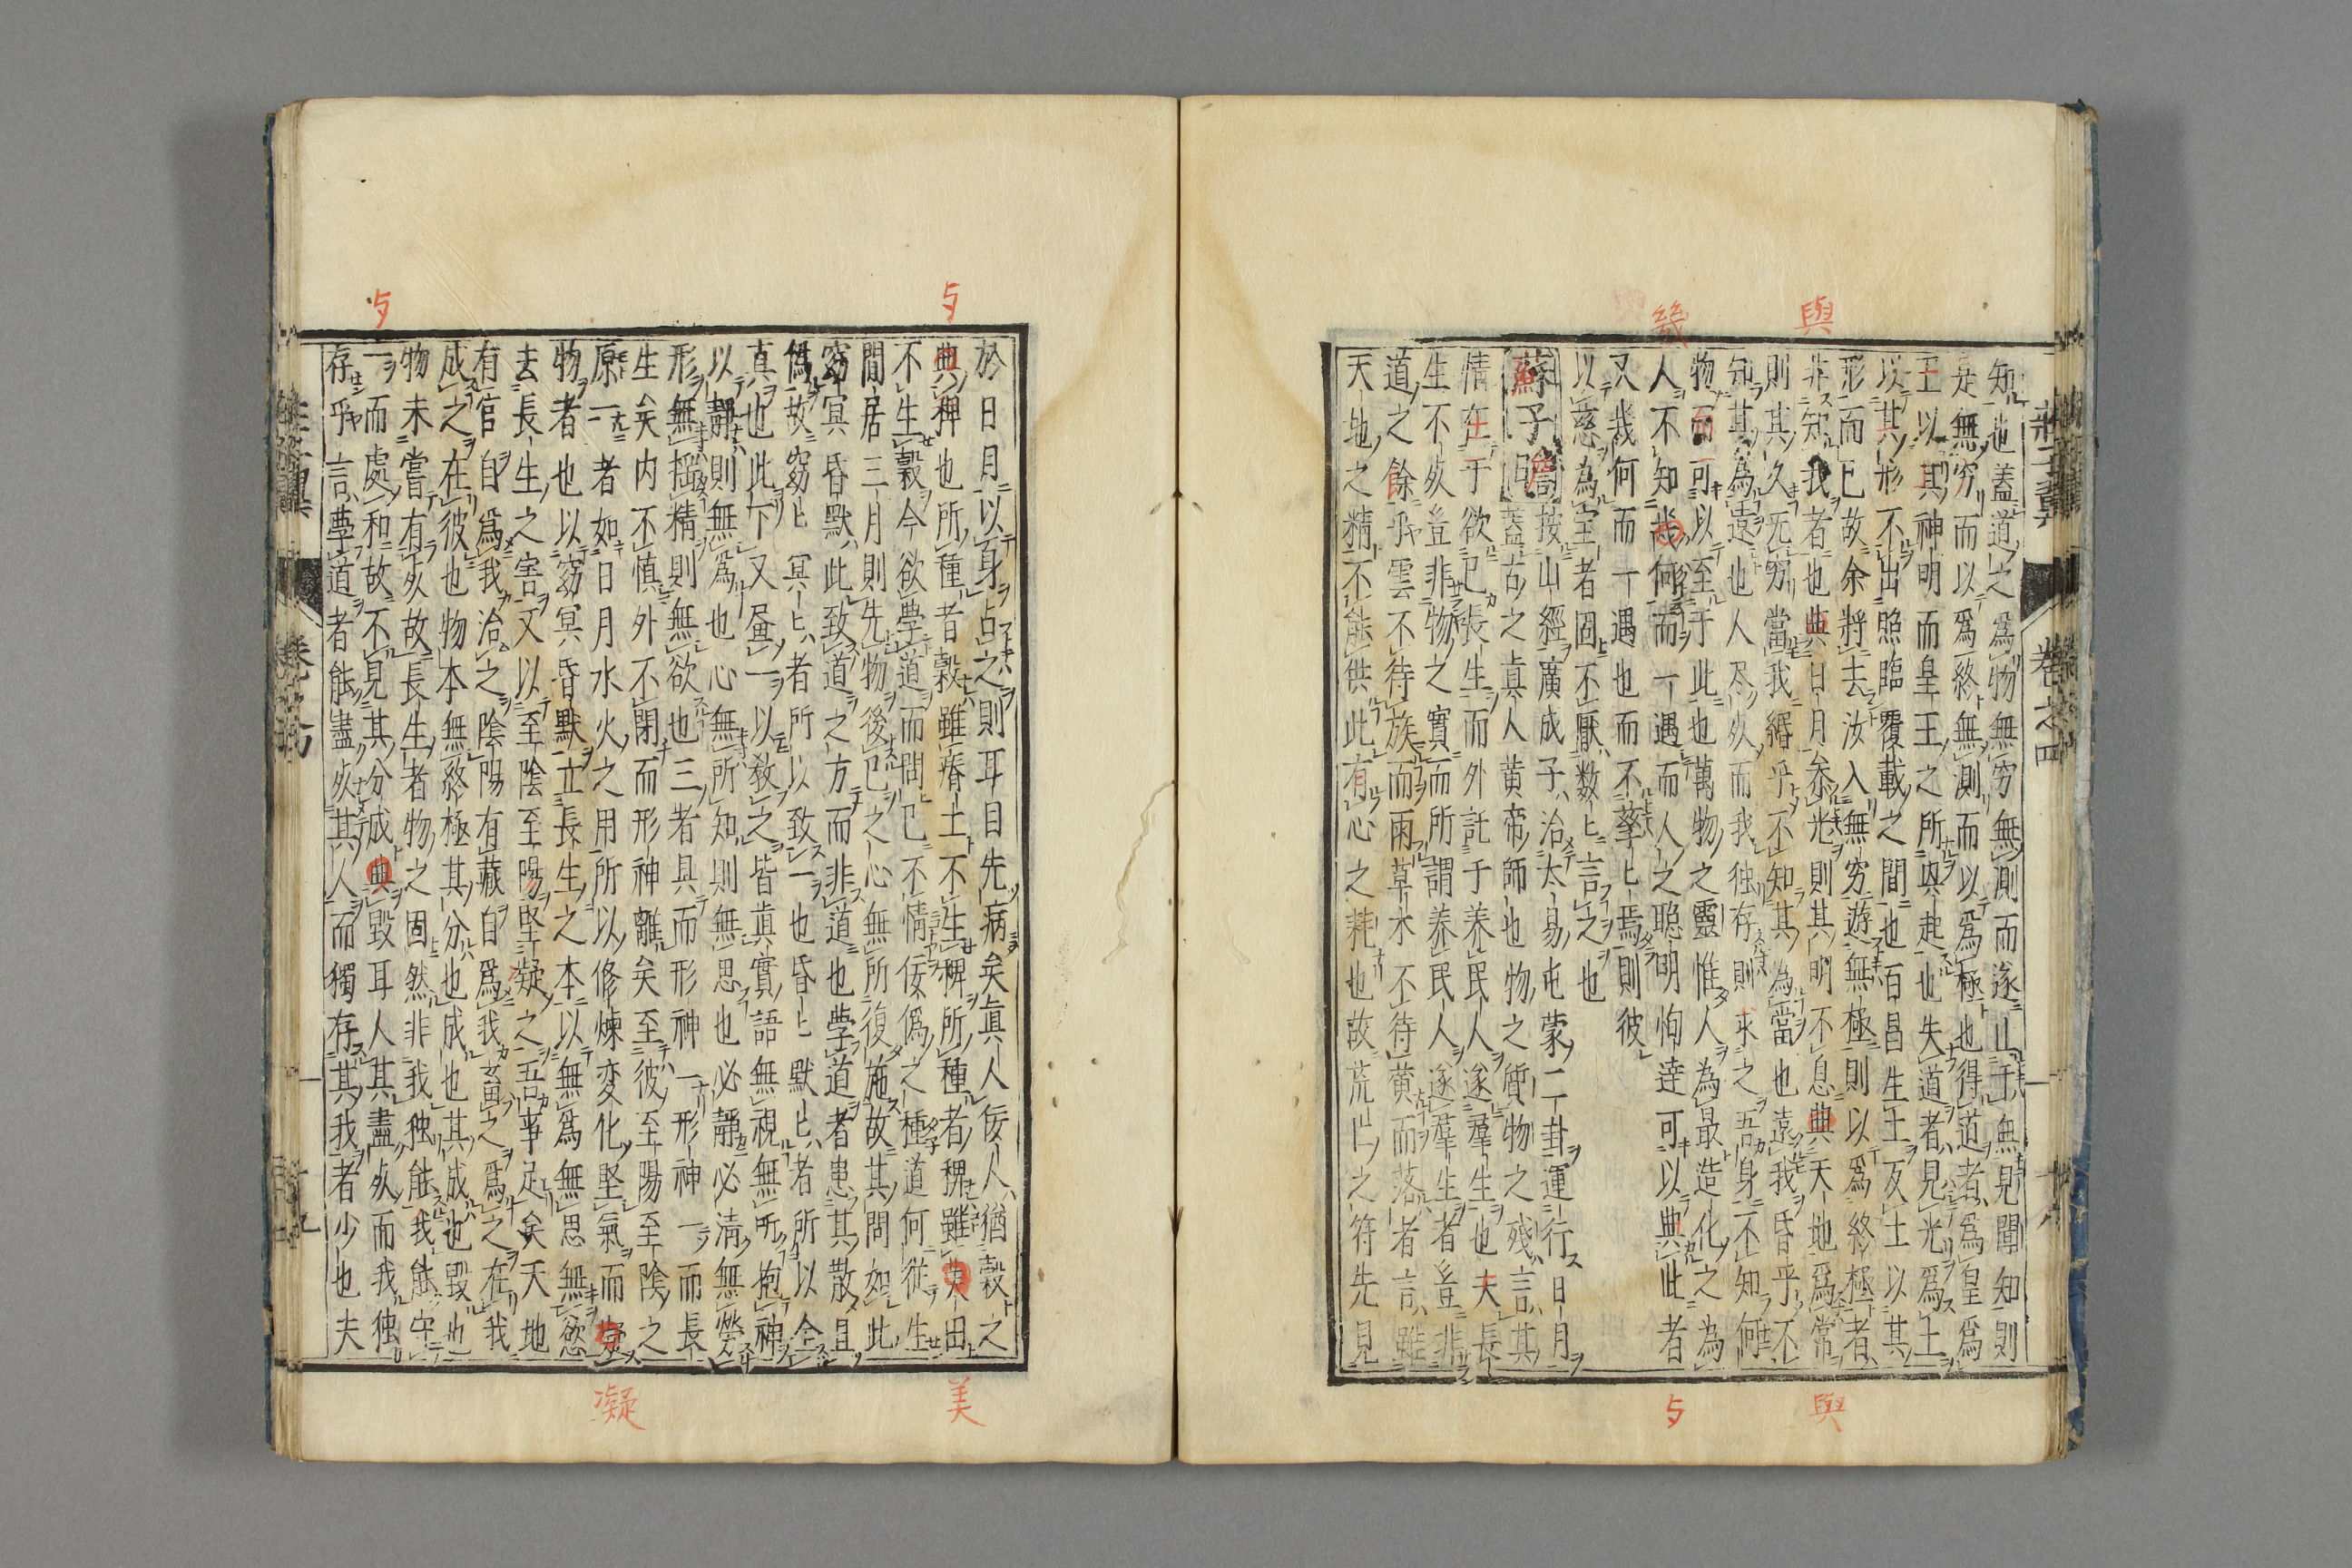 知也蓋道之為物無窮無測而遂止于無見聞知則
是無窮而以爲終無測而以爲極也得道者爲皇爲
王以其神明而皇王之所與起也失道者見光爲土
以其形不出照臨覆載之間也百昌生土反土以其
形而已故余將去汝入無窮遊無極則以爲終極者
非知我者也典日月參光則其明不息典天地爲常
則其久无窮當我緡乎不知其為當也遠我昏乎不
知其為遠也人尽死而我独存則求之吾身不知何
物而可以至于此也萬物之靈惟人為最造化之為
人不知幾何而一遇而人之聡明恂達可以典此者
又我何而一遇也而不孳〻焉則彼
以慈為宝者固不厭数〻言之也
蘇子瞻按山經廣成子治太易屯蒙二卦運行日月
蓋古之真人黄帝師也物之質物之殘言其
情在于欲己長生而外託于养民人遂羣生也夫長
生不死豈非物之實而所謂养民人遂羣生者豈非
道之餘乎雲不待族而雨草木不待黄而落者言雖
天地之精不能供此有心之耗也故荒亡之符先見
於日月以身占之則耳目先病矣真人佞人猶穀之
典稗也所種者穀雖瘠土不生稗所種者稗雖美田
不生穀今欲學道而問已不情佞偽之種道何從生
間居三月則先物後已之心無所復施故其問如此
窈冥昏默此致道之方而非道也學道者患其散且
偽故窈〻冥〻者所以致一也昏〻默〻者所以全
真也此下又昼一以教之皆真實語無視無所抱神
以靜則無爲也心無所知則無思也必靜必清無勞
形無揺精則無欲也三者具而形神一形神一而長
生矣内不慎外不閉而形神離矣至彼至陽至陰之
原一者如日月水火之用所以修煉変化堅氣而凝
物者也以窈冥昏默立長生之本以無爲無思無慾
去長生之害又以至陰至陽堅凝之吾事足矣天地
有官自爲我治之陰陽有藏自爲我畜之爲之在我
成之在彼也物本無終極其分也成也其成也毀也
物未嘗有死故長生者物之固然非我独能我能守
一而處和故不見其分成典毀耳人其盡死而我独
存乎言學道者能盡死其人而獨存其我者少也夫
與
幾
与
與
与
与
美
凝
莊子翼 卷之四 十八